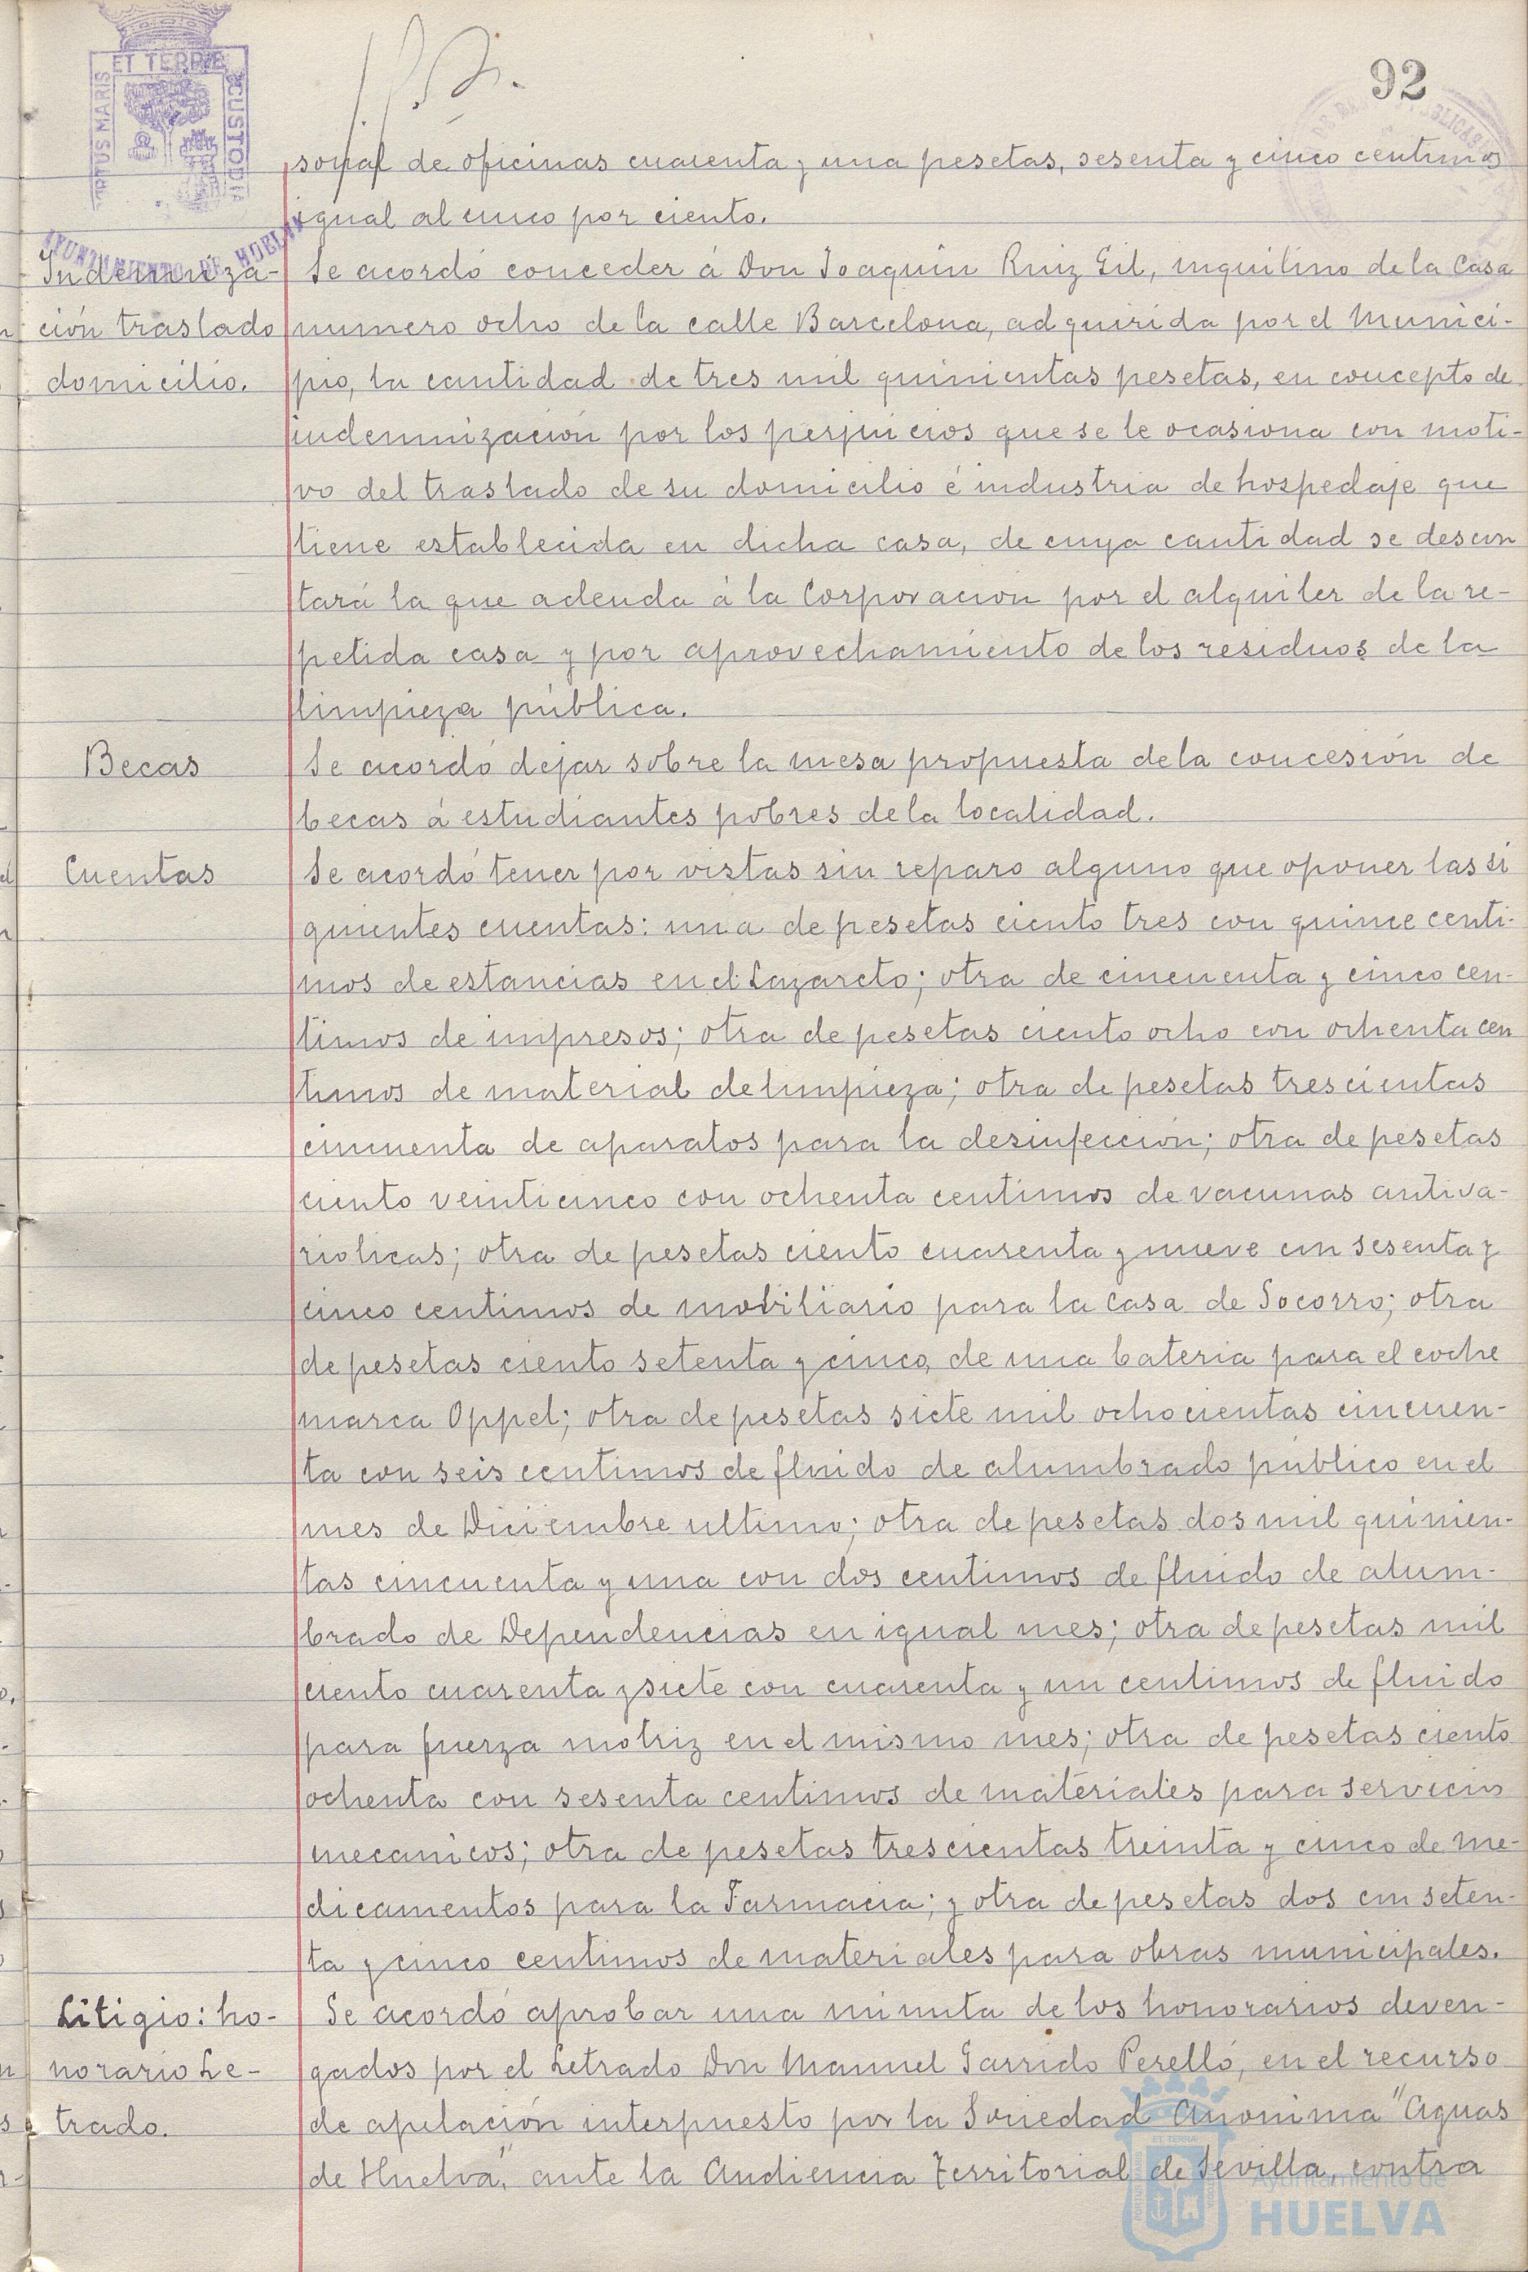 92
ET TERRE
CUSTODIA
MARIS
AYUNTAMIENTO DE HUELVA
sonal de oficinas cuarenta y una pesetas, sesenta y cinco centimos
igual al cinco por ciento.
Indemniza-
ción traslado
domicilio.
Se acordó conceder á Don Joaquin Ruiz Gil, inquilino de la Casa
numero ocho de la calle Barcelona, adquirida por el Munici-
pio, la cantidad de tres mil quinientas pesetas, en concepto de
indemnización por los perjuicios que se le ocasiona con moti-
vo del traslado de su domicilio é industria de hospedaje que
tiene establecida en dicha casa, de cuya cantidad se descon
tará la que adeuda á la Corporación por el alquiler de la re-
petida casa y por aprovechamiento de los residuos de la
limpieza pública.
Becas
Se acordó dejar sobre la mesa propuesta de la concesión de
becas á estudiantes pobres de la localidad.
Cuentas
Se acordó tener por vistas sin reparo alguno que oponer las si
guientes cuentas: una de pesetas ciento tres con quince centi-
mos de estancias en el Lazareto; otra de cincuenta y cinco cen-
timos de impresos; otra de pesetas ciento ocho con ochenta cen
timos de material de limpieza; otra de pesetas trescientas
cincuenta de aparatos para la desinfección; otra de pesetas
ciento veinticinco con ochenta centimos de vacunas antiva-
riolicas; otra de pesetas ciento cuarenta y nueve con sesenta y
cinco centimos de mobiliario para la Casa de Socorro; otra
de pesetas ciento setenta y cinco, de una bateria para el coche
marca Oppel; otra de pesetas siete mil ochocientas cincuen-
ta con seis centimos de fluido de alumbrado público en el
mes de Diciembre ultimo; otra de pesetas dos mil quinien-
tas cincuenta y una con dos centimos de fluido de alum-
brado de Dependencias en igual mes; otra de pesetas mil
ciento cuarenta y siete con cuarenta y un centimos de fluido
para fuerza motriz en el mismo mes; otra de pesetas ciento
ochenta con sesenta centimos de materiales para servicios
mecanicos; otra de pesetas trescientas treinta y cinco de me-
dicamentos para la Farmacia; y otra de pesetas dos con seten-
ta y cinco centimos de materiales para obras municipales.
Litigio: ho-
norario Le-
trado.
Se acordó aprobar una minuta de los honorarios deven-
gados por el Letrado Don Manuel Garrido Perelló, en el recurso
de apelación interpuesto por la Sociedad Anonima "Aguas
de Huelva", ante la Audiencia Territorial de Sevilla, contra
Ayuntamiento de
HUELVA